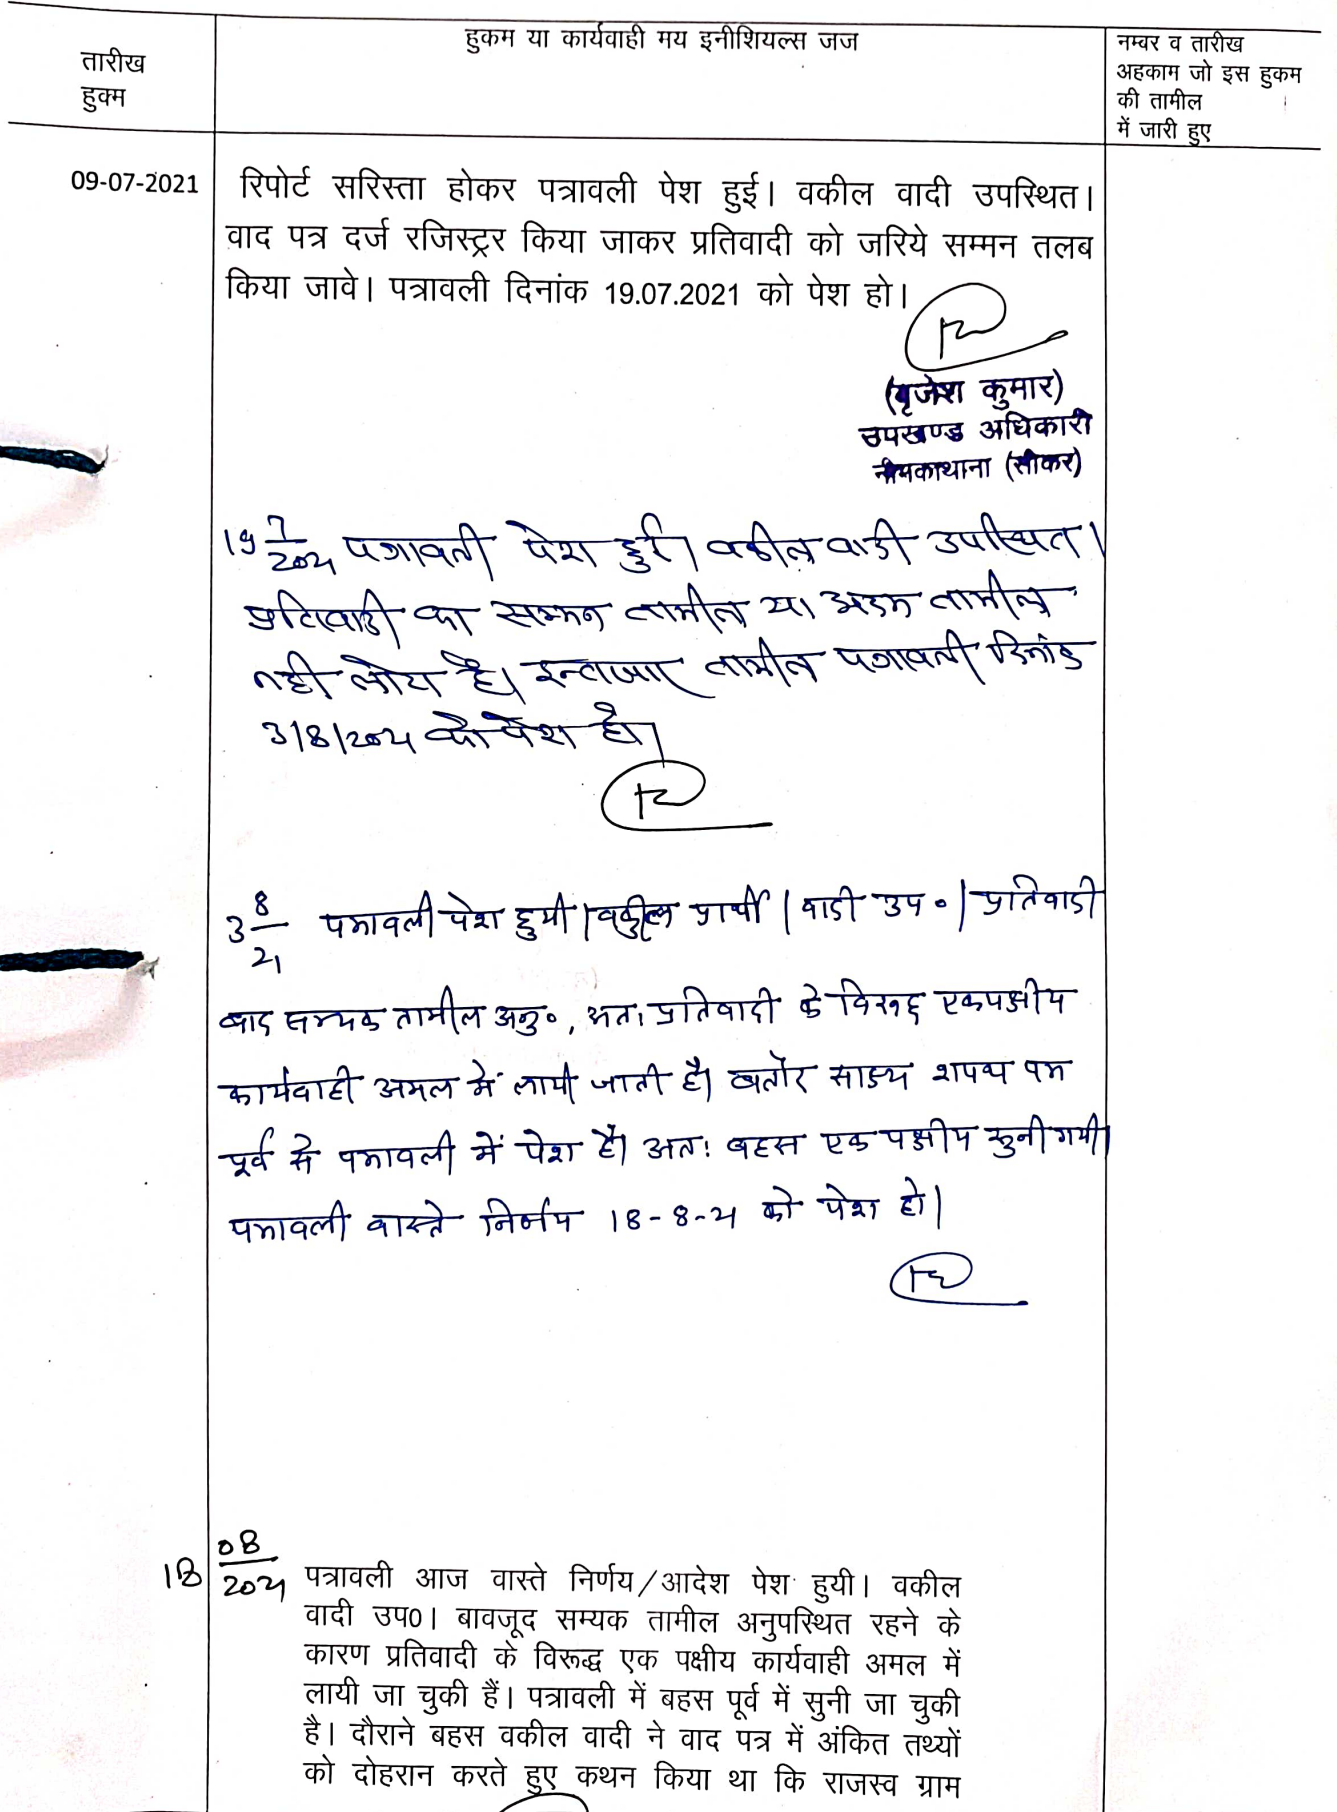 तारीख
हुक्म
हुकम या कार्यवाही मय इनीशियल्स जज
नम्वर व तारीख
अहकाम जो इस हुकम
की तामील
में जारी हुए
09-07-2021
रिपोर्ट सरिस्ता होकर पत्रावली पेश हुई। वकील वादी उपस्थित।
वाद पत्र दर्ज रजिस्ट्रर किया जाकर प्रतिवादी को जरिये सम्मन तलब
किया जावे। पत्रावली दिनांक 19.07.2021 को पेश हो।
(बृजेश कुमार)
उपखण्ड अधिकारी
नीमकाथाना (सीकर)
19 7/2021 पत्रावली पेश हुई। वकील वादी उपस्थित।
प्रतिवादी का सम्मन तामील या अदम तामील
नही लोटा है। इन्तजार तामील पत्रावली दिनांक
3/8/2021 को पेश हो।
3 8/21 पत्रावली पेश हुयी। वकील प्रार्थी / वादी उप॰। प्रतिवादी
बाद सम्यक तामील अनु॰, अतः प्रतिवादी के विरुद्ध एकपक्षीय
कार्यवाही अमल में लायी जाती है। बतौर साक्ष्य शपथ पत्र
पूर्व से पत्रावली में पेश है। अतः बहस एक पक्षीय सुनी गयी।
पत्रावली वास्ते निर्णय 18-8-21 को पेश हो।
18 08/2021
पत्रावली आज वास्ते निर्णय/आदेश पेश हुयी। वकील
वादी उप0। बावजूद सम्यक तामील अनुपस्थित रहने के
कारण प्रतिवादी के विरूद्ध एक पक्षीय कार्यवाही अमल में
लायी जा चुकी हैं। पत्रावली में बहस पूर्व में सुनी जा चुकी
है। दौराने बहस वकील वादी ने वाद पत्र में अंकित तथ्यों
को दोहरान करते हुए कथन किया था कि राजस्व ग्राम